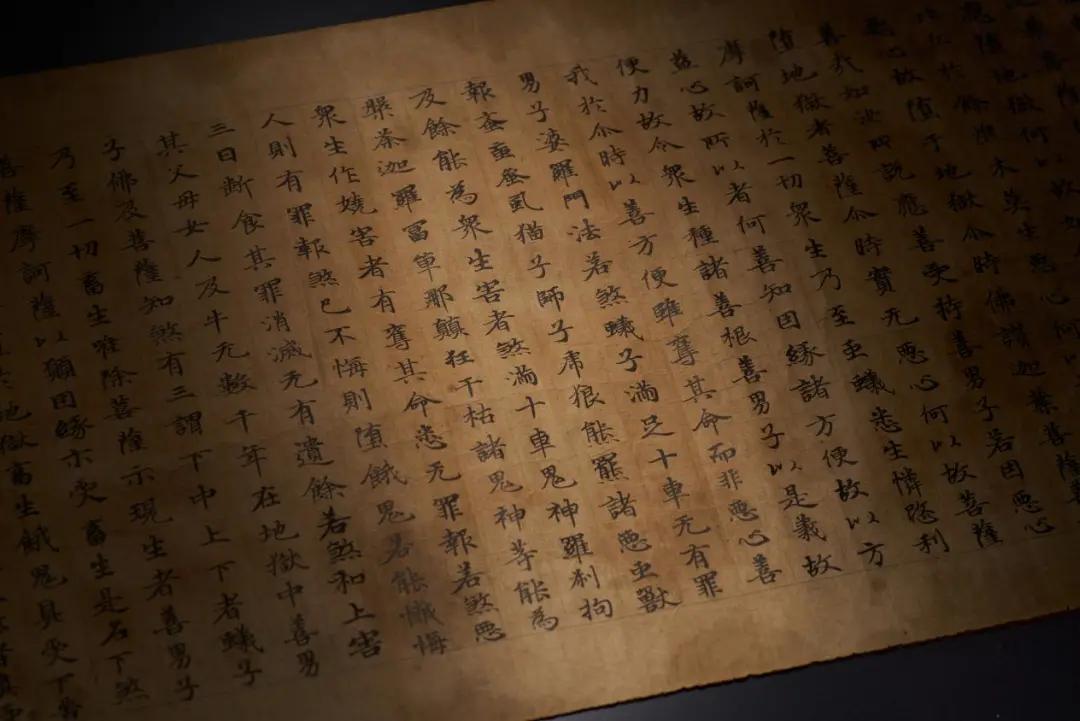 應墮地獄何以故
是心故墮于地獄尒時佛讚迦葉善薩善
善我如汝所說應善受持善男子若因惡心
墮地獄者善薩尒時實无惡心何以故善薩
摩訶薩於一切衆生乃至虫蟻悉生憐愍利
益心故所以者何善知因緣諸方便故以方
便力故令衆生種諸善根善男子以是義故
我於尒時以善方便雖奪其命而非惡心善
男子婆羅門法若煞蟻子滿足十車无有罪
報蚉䖟蚤虱猫子師子虎狼熊羆諸惡虫獸
及餘能為衆生害者煞滿十車鬼神羅剎狗
槃茶迦羅冨單那顛狂干枯諸鬼神等能為
衆生作嬈害者有奪其命悉无罪報若煞惡
人則有罪報煞已不悔則墮餓鬼若能懺悔
三日斷食其罪消滅无有遺餘若煞和上害
其父母女人及牛无數千年在地獄中善男
子佛及善薩知煞有三謂下中上下者蟻子
乃至一切畜生唯除善薩示現生者善男子
善薩摩訶薩以願因緣示受畜生是名下煞
地獄畜生餓鬼具受下苦